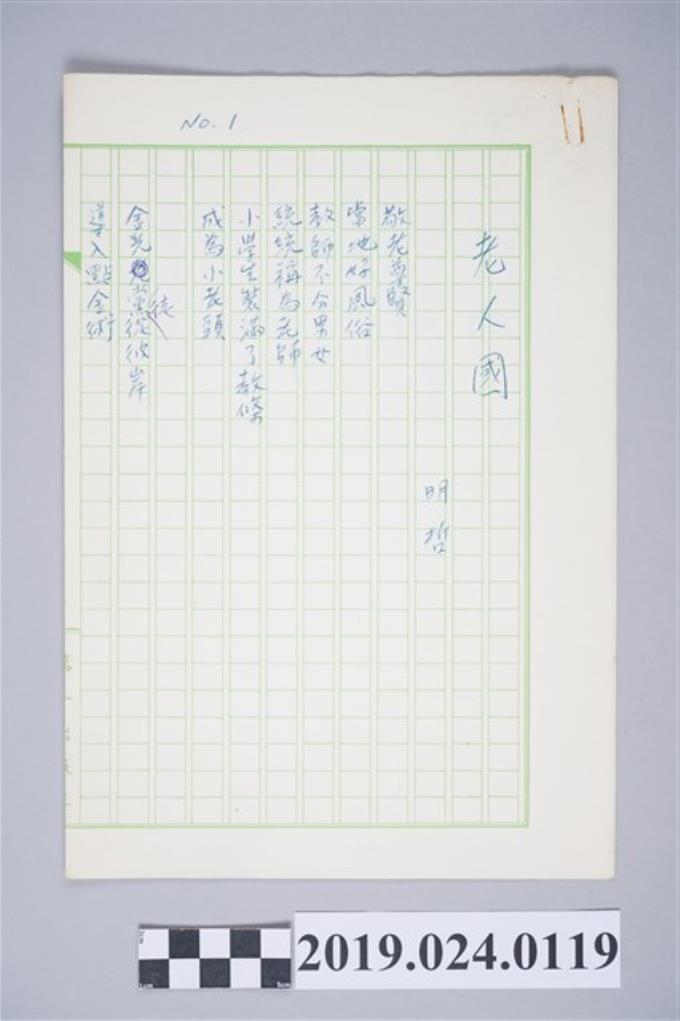 No. 1
老人國
明哲
敬老尊賢
當地好風俗
教師不分男女
統統稱為老師
小學生裝滿了教條
成為小老頭
金光黨徒從彼岸
導入點金術
2019.024.0119